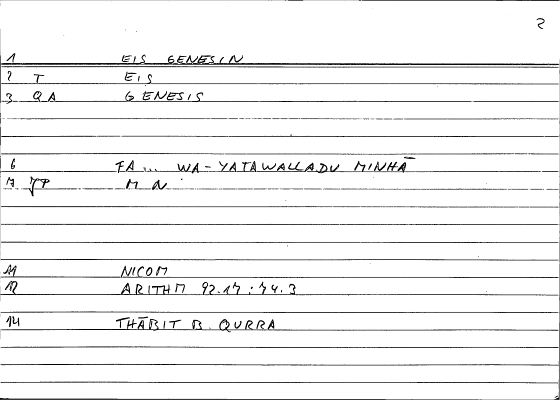 2
1 EIS GENESIN
2 T EIS
3 QA GENESIS
6 FA... WA-YATAWALLADU MINHĀ
7 M N
11 NICOM
12 ARITHM 92.17 : 74.3
14 THĀBIT B. QURRA